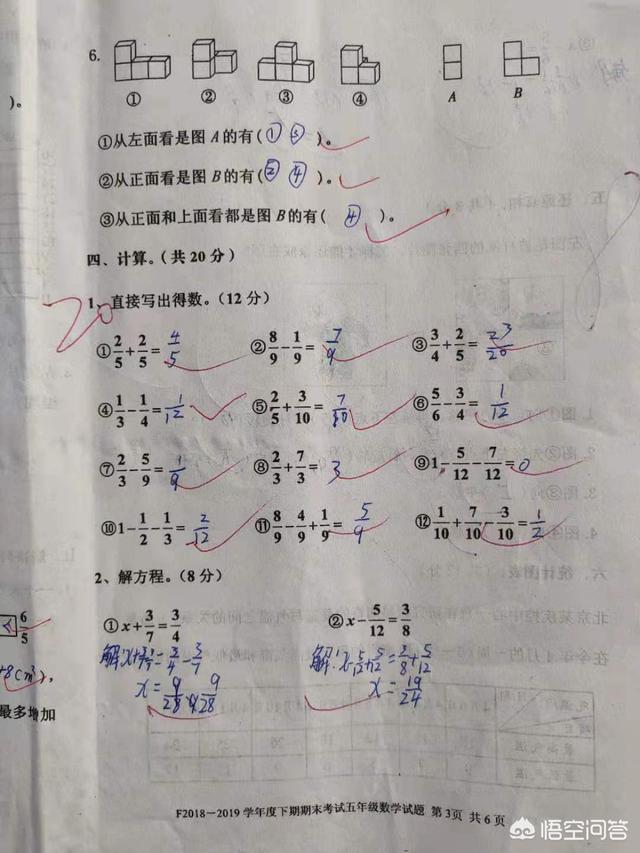 )。
6.
① ② ③ ④ A B
①从左面看是图 A 的有( ① ③ )。
②从正面看是图 B 的有( ② ④ )。
③从正面和上面看都是图 B 的有( ④ )。
四、计算。(共 20 分)
20
1、直接写出得数。(12 分)
①2/5+2/5=4/5 ②8/9-1/9=7/9 ③3/4+2/5=23/20
④1/3-1/4=1/12 ⑤2/5+3/10=7/10 ⑥5/6-3/4=1/12
⑦2/3-5/9=1/9 ⑧2/3+7/3=3 ⑨1-5/12-7/12=0
⑩1-1/2-1/3=2/12 ⑪8/9-4/9+1/9=5/9 ⑫1/10+7/10-3/10=1/2
2、解方程。(8 分)
①x+3/7=3/4 ②x-5/12=3/8
6/5
解: 3/4-3/7 解: 5/12+5/12=3/8+5/12
x=9/28 9/28 x=19/24
8(m³),
最多增加
F2018-2019 学年度下期期末考试五年级数学试题 第 3页 共 6 页
悟空问答